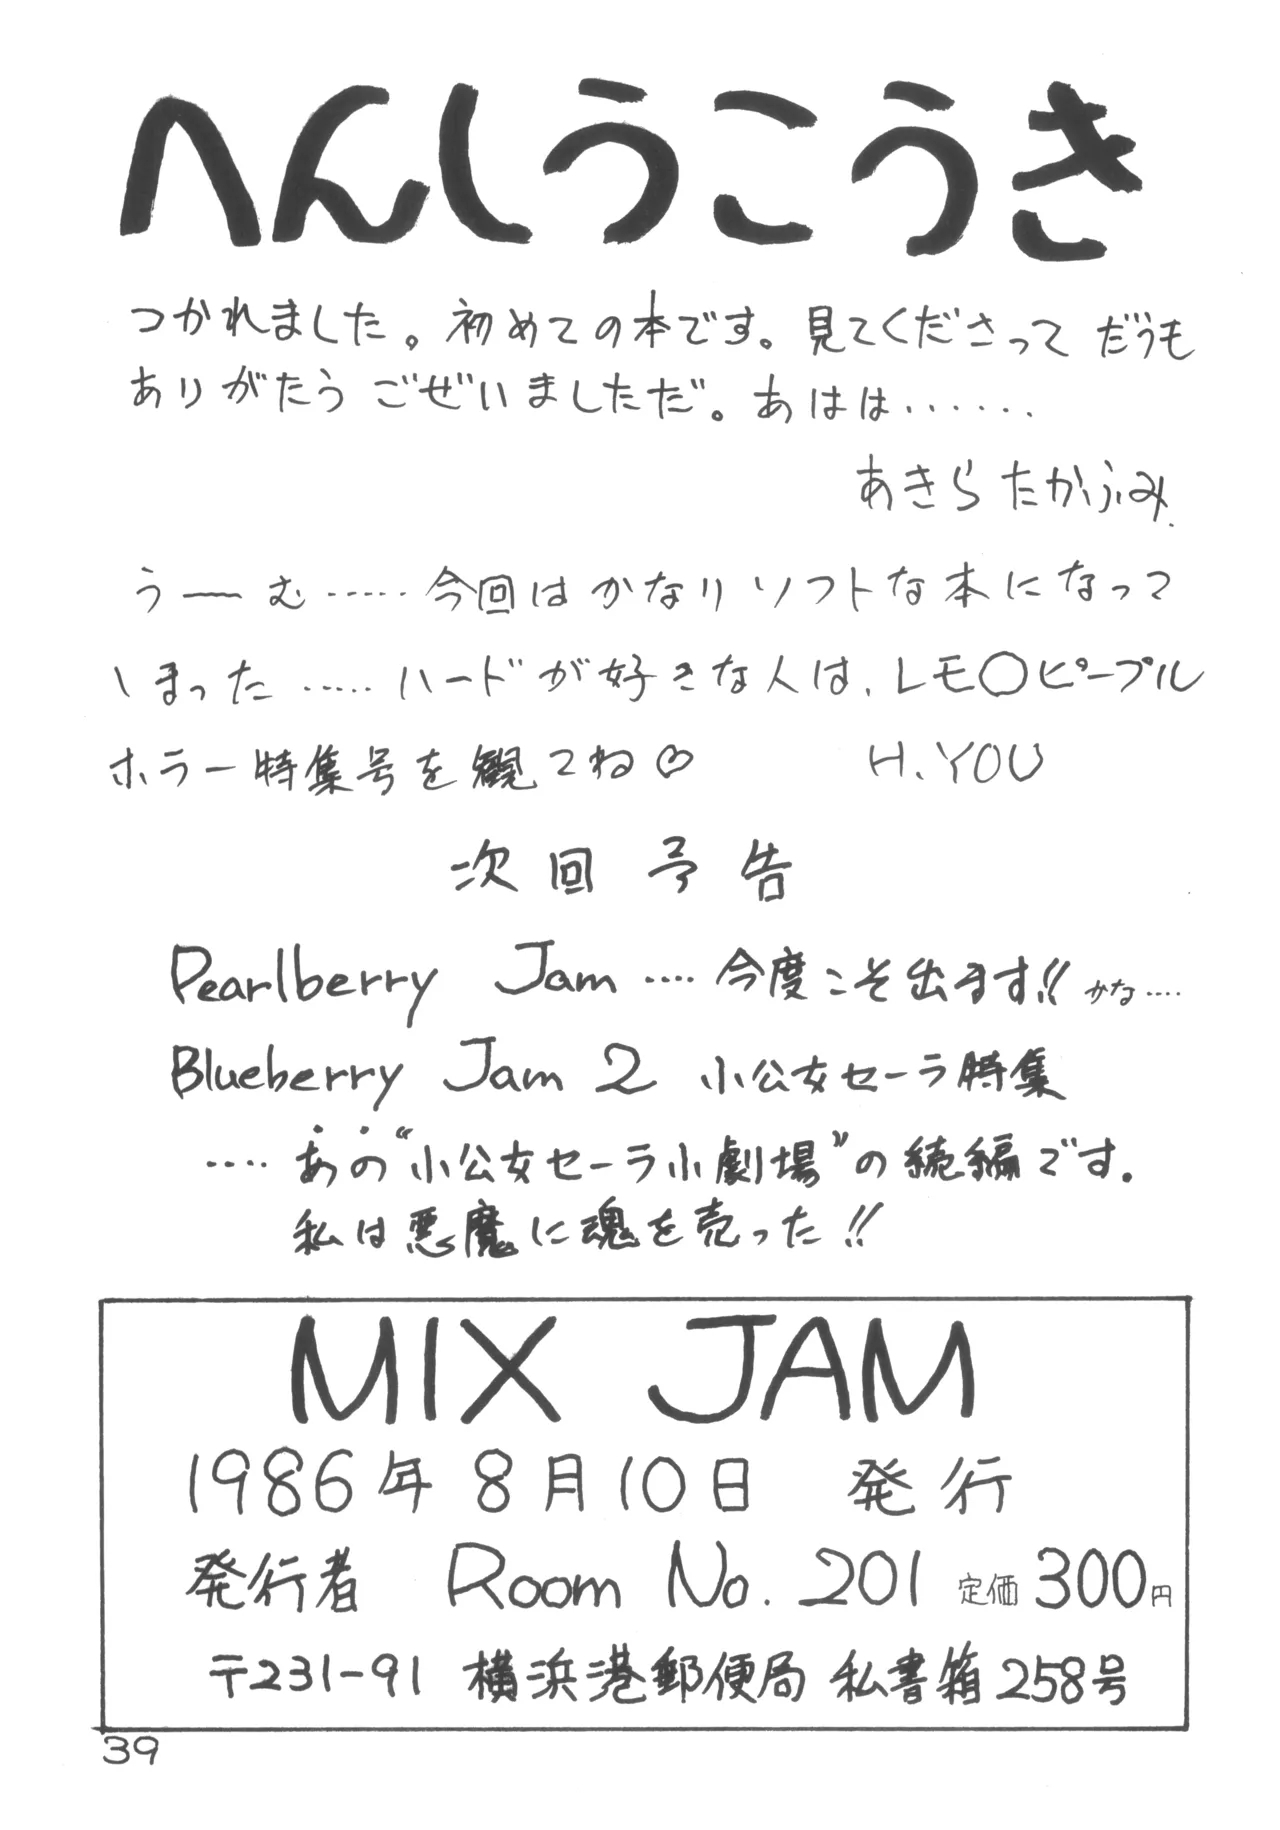 へんしうこうき
つかれました。初めての本です。見てくださって だうも
ありがたう ごぜいましただ。あはは‥‥‥
あきら たかふみ.
うーむ‥‥‥今回は かなり ソフトな本になって
しまった ‥‥‥ハードが好きな人は、レモ〇ピープル
ホラー特集号を観てね♡ H.YOU
次回予告
Pearlberry Jam ‥‥今度こそ出ます!! かな‥‥
Blueberry Jam 2 小公女セーラ特集
‥‥あの“小公女セーラ小劇場”の続編です.
私は悪魔に魂を売った!!
MIX JAM
1986年8月10日 発行
発行者 Room No. 201 定価300円
〒231-91 横浜港郵便局 私書箱258号
39